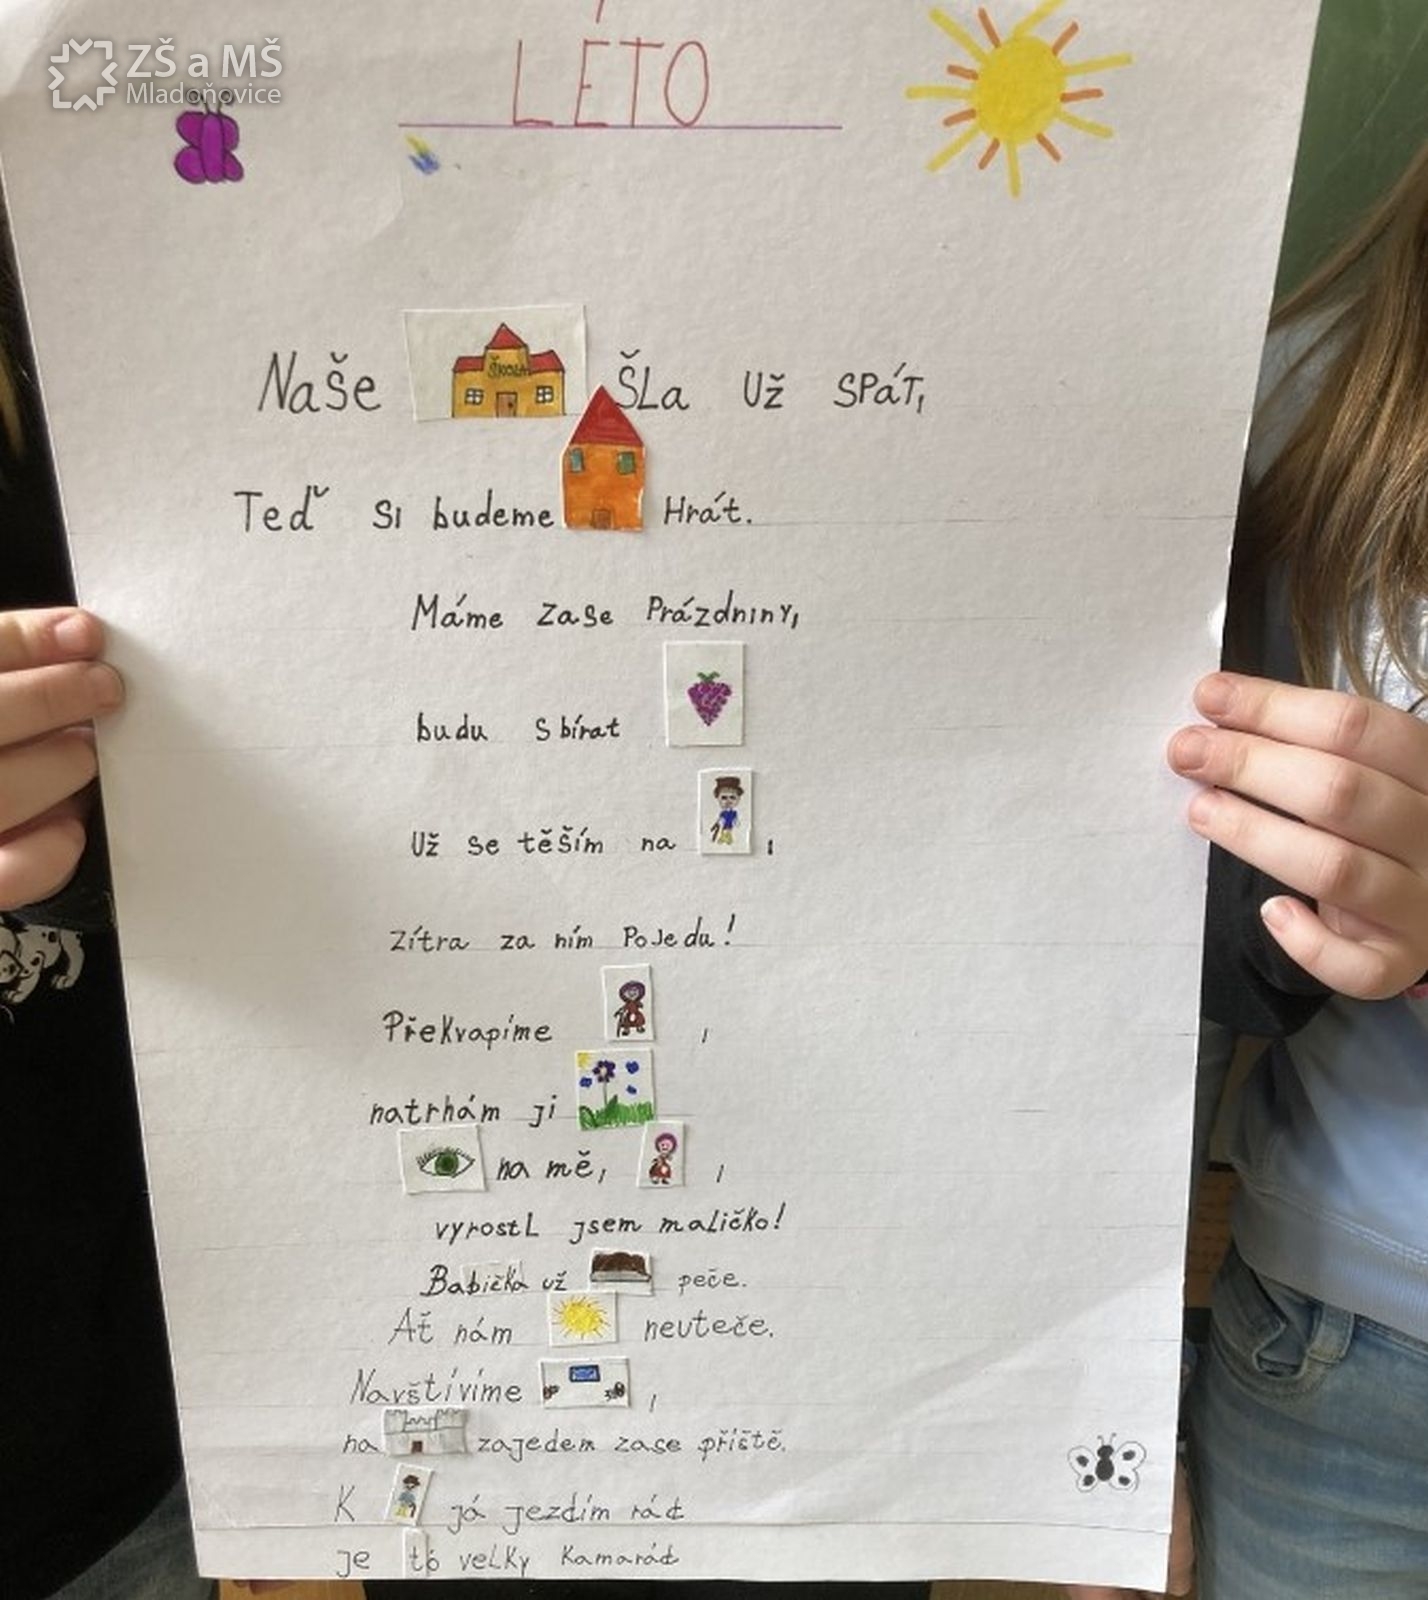 ZŠ a MŠ
Mladoňovice
LÉTO
ŠKOLA
Naše ŠLa Už SPáT,
Teď si budeme Hrát.
Máme zase Prázdniny,
budu sbírat
Už se těším na ,
Zítra za ním Pojedu!
Překvapíme ,
natrhám ji
na mě, ,
vyrostL jsem maličko!
Babička už peče.
Ať nám neuteče.
Navštívíme ,
na zajedem zase příště.
K já jezdím rád
je to velky Kamarád